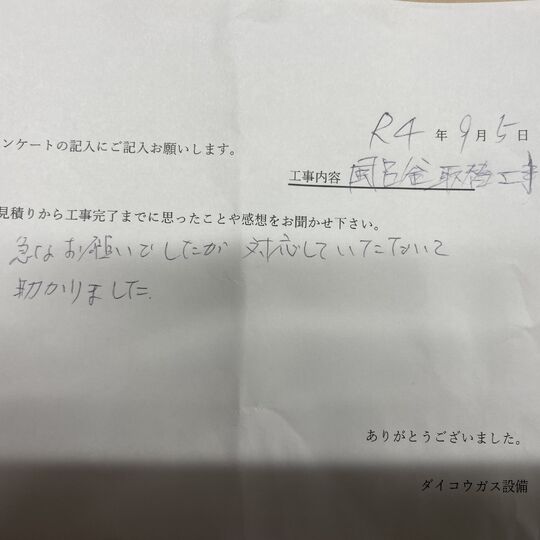 R4年9月5日
ンケートの記入にご記入お願いします。
工事内容 風呂釜取替工事
見積りから工事完了までに思ったことや感想をお聞かせ下さい。
急なお願いでしたが対応していただいて
助かりました.
ありがとうございました。
ダイコウガス設備